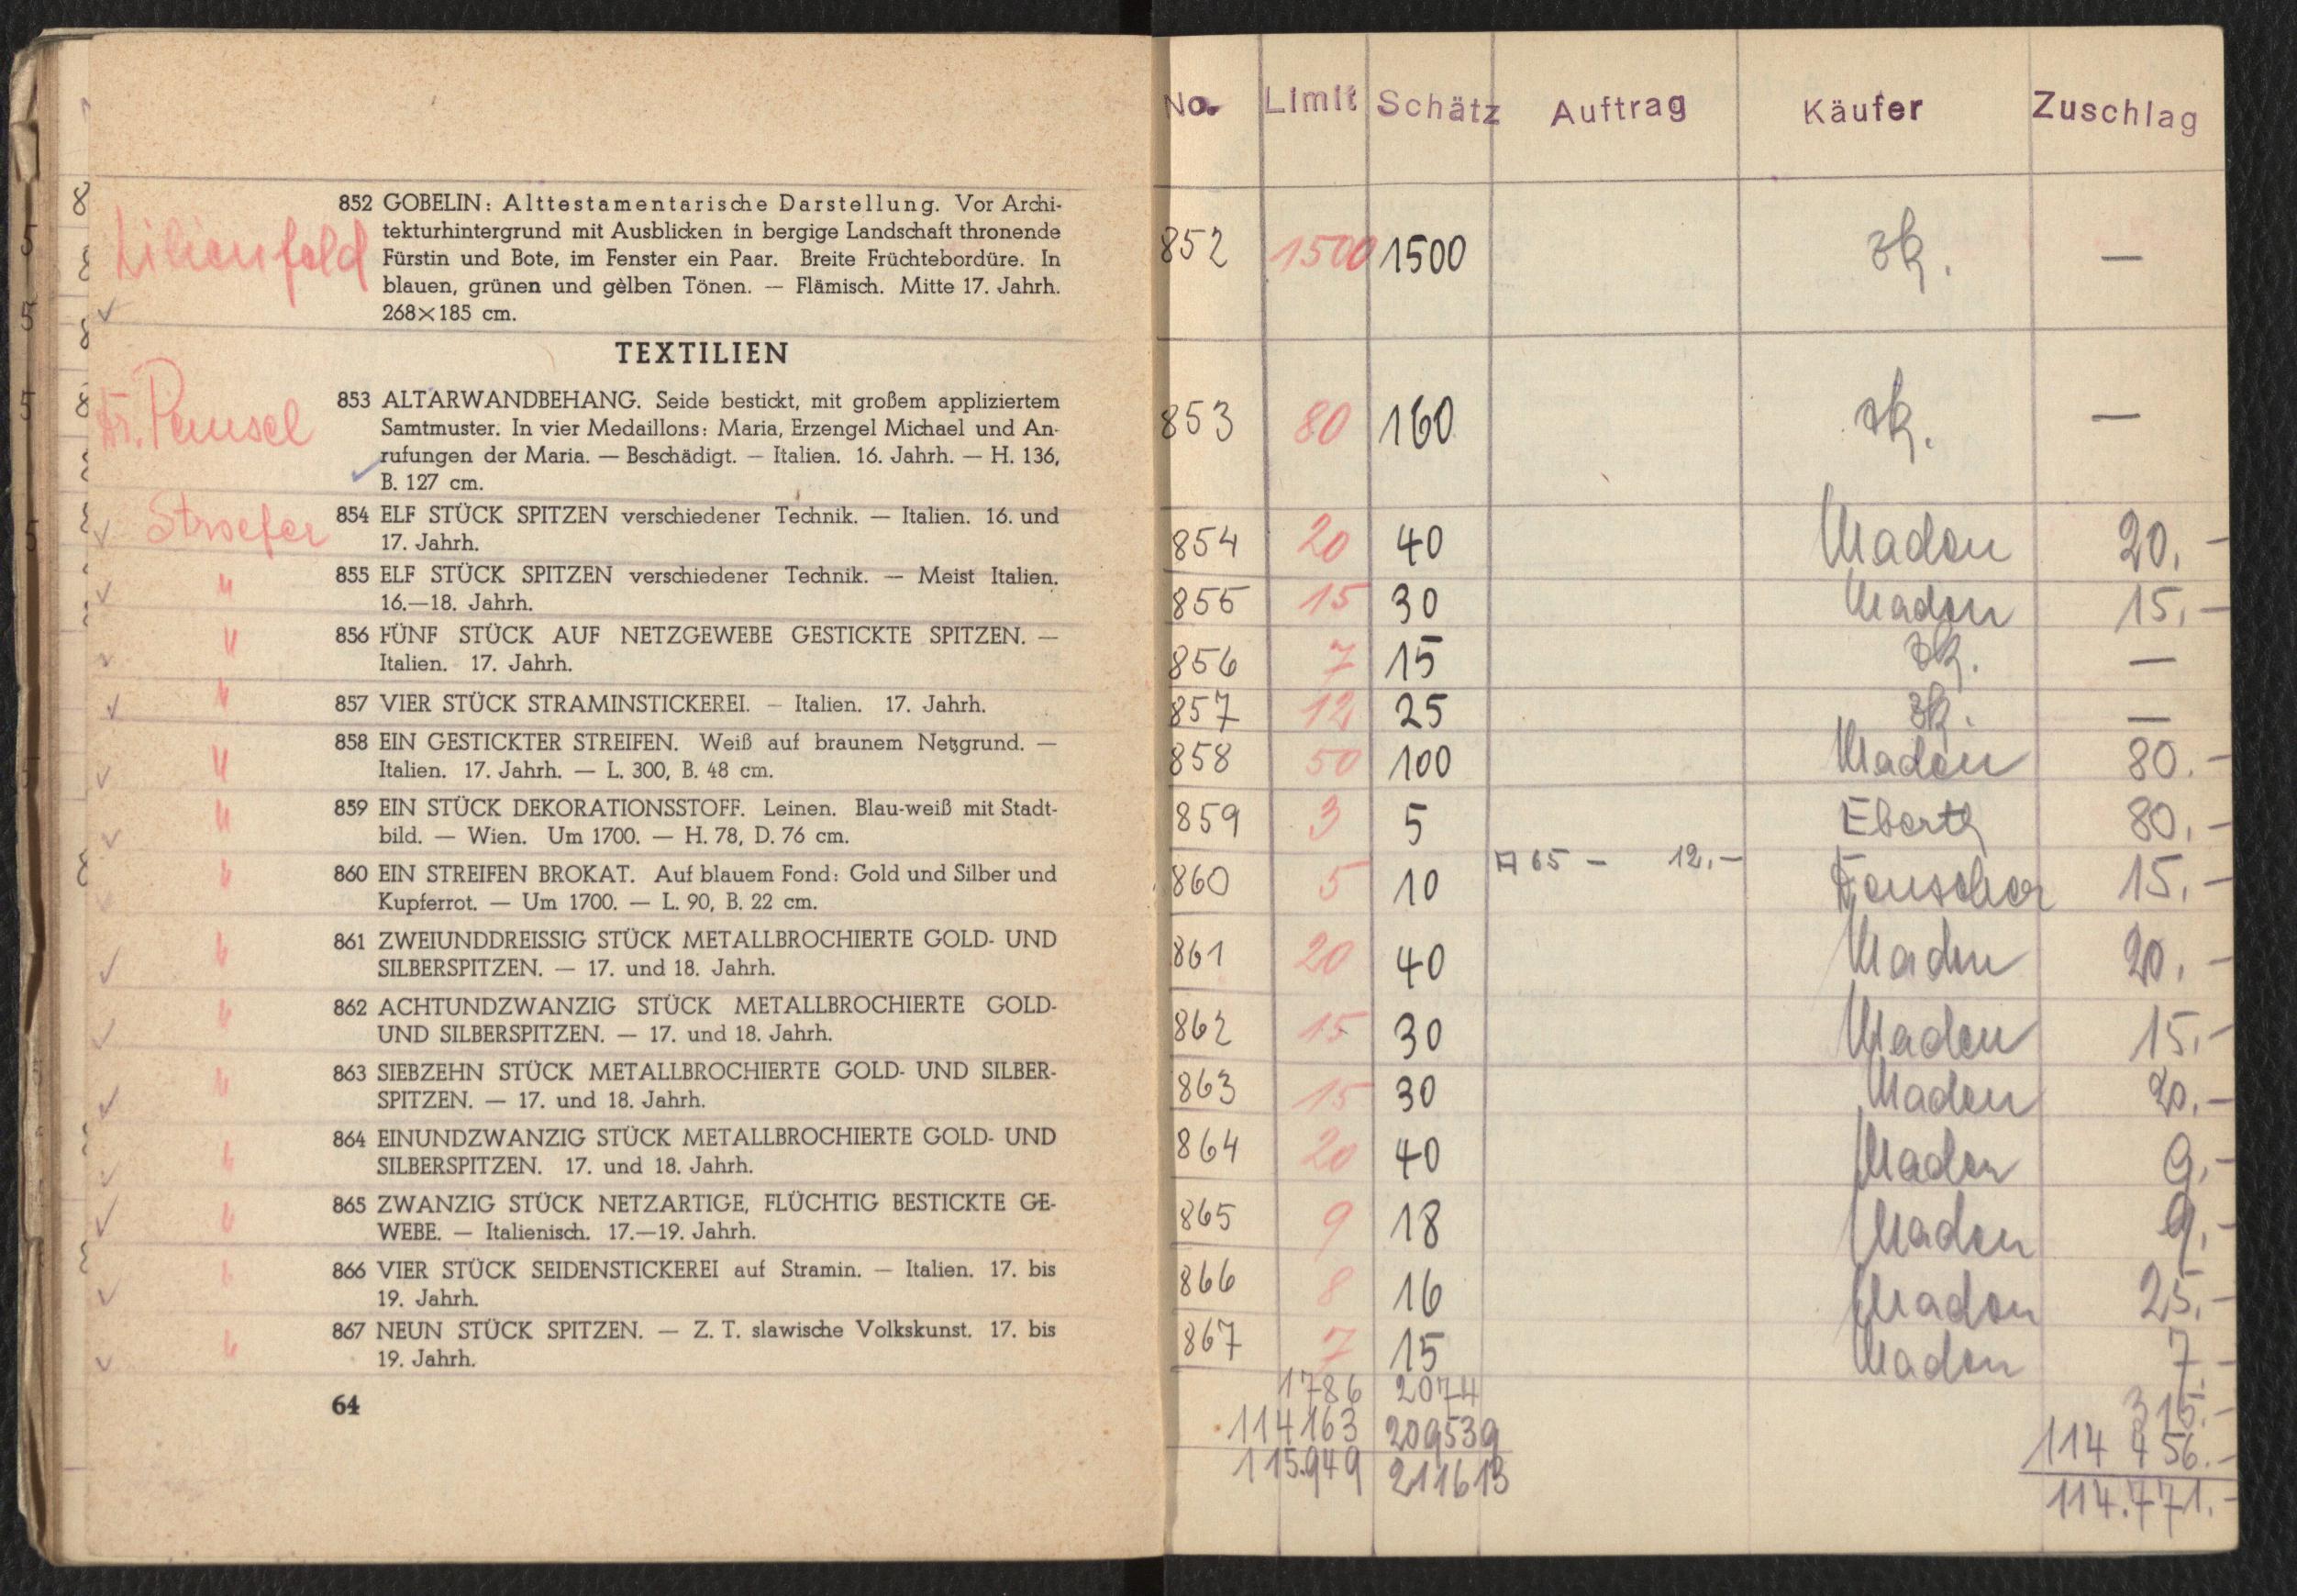 852 GOBELIN: Alttestamentarische Darstellung. Vor Archi-
tekturhintergrund mit Ausblicken in bergige Landschaft thronende
Lilienfeld
Fürstin und Bote, im Fenster ein Paar. Breite Früchtebordüre. In
blauen, grünen und gelben Tönen. — Flämisch. Mitte 17. Jahrh.
268×185 cm.
TEXTILIEN
853 ALTARWANDBEHANG. Seide bestickt, mit großem appliziertem
Samtmuster. In vier Medaillons: Maria, Erzengel Michael und An-
rufungen der Maria. — Beschädigt. — Italien. 16. Jahrh. — H. 136,
B. 127 cm.
Stroefer
854 ELF STÜCK SPITZEN verschiedener Technik. — Italien. 16. und
17. Jahrh.
" 855 ELF STÜCK SPITZEN verschiedener Technik. — Meist Italien.
16.—18. Jahrh.
" 856 FÜNF STÜCK AUF NETZGEWEBE GESTICKTE SPITZEN. —
Italien. 17. Jahrh.
" 857 VIER STÜCK STRAMINSTICKEREI. — Italien. 17. Jahrh.
" 858 EIN GESTICKTER STREIFEN. Weiß auf braunem Netzgrund. —
Italien. 17. Jahrh. — L. 300, B. 48 cm.
" 859 EIN STÜCK DEKORATIONSSTOFF. Leinen. Blau-weiß mit Stadt-
bild. — Wien. Um 1700. — H. 78, D. 76 cm.
" 860 EIN STREIFEN BROKAT. Auf blauem Fond: Gold und Silber und
Kupferrot. — Um 1700. — L. 90, B. 22 cm.
" 861 ZWEIUNDDREISSIG STÜCK METALLBROCHIERTE GOLD- UND
SILBERSPITZEN. — 17. und 18. Jahrh.
" 862 ACHTUNDZWANZIG STÜCK METALLBROCHIERTE GOLD-
UND SILBERSPITZEN. — 17. und 18. Jahrh.
" 863 SIEBZEHN STÜCK METALLBROCHIERTE GOLD- UND SILBER-
SPITZEN. — 17. und 18. Jahrh.
" 864 EINUNDZWANZIG STÜCK METALLBROCHIERTE GOLD- UND
SILBERSPITZEN. 17. und 18. Jahrh.
" 865 ZWANZIG STÜCK NETZARTIGE, FLÜCHTIG BESTICKTE GE-
WEBE. — Italienisch. 17.—19. Jahrh.
" 866 VIER STÜCK SEIDENSTICKEREI auf Stramin. — Italien. 17. bis
19. Jahrh.
" 867 NEUN STÜCK SPITZEN. — Z. T. slawische Volkskunst. 17. bis
19. Jahrh.
64
No. Limit Schätz Auftrag Käufer Zuschlag
852 1500 1500 zk. —
853 80 160 zk. —
854 20 40 Maden 20.-
855 15 30 Maden 15.-
856 7 15 zk. —
857 12 25 zk. —
858 50 100 Maden 80.-
859 3 5 Eberth 80.-
860 5 10 65 – 12.– 15.-
861 20 40 Maden 20.-
862 15 30 Maden 15.-
863 15 30 Maden 20.-
864 20 40 Maden 9.-
865 9 18 Maden 9.-
866 8 16 Maden 25.-
867 7 15 Maden 7.-
1786 2074 315.-
114163 209539 114 456.-
115.949 211613 114.771.-